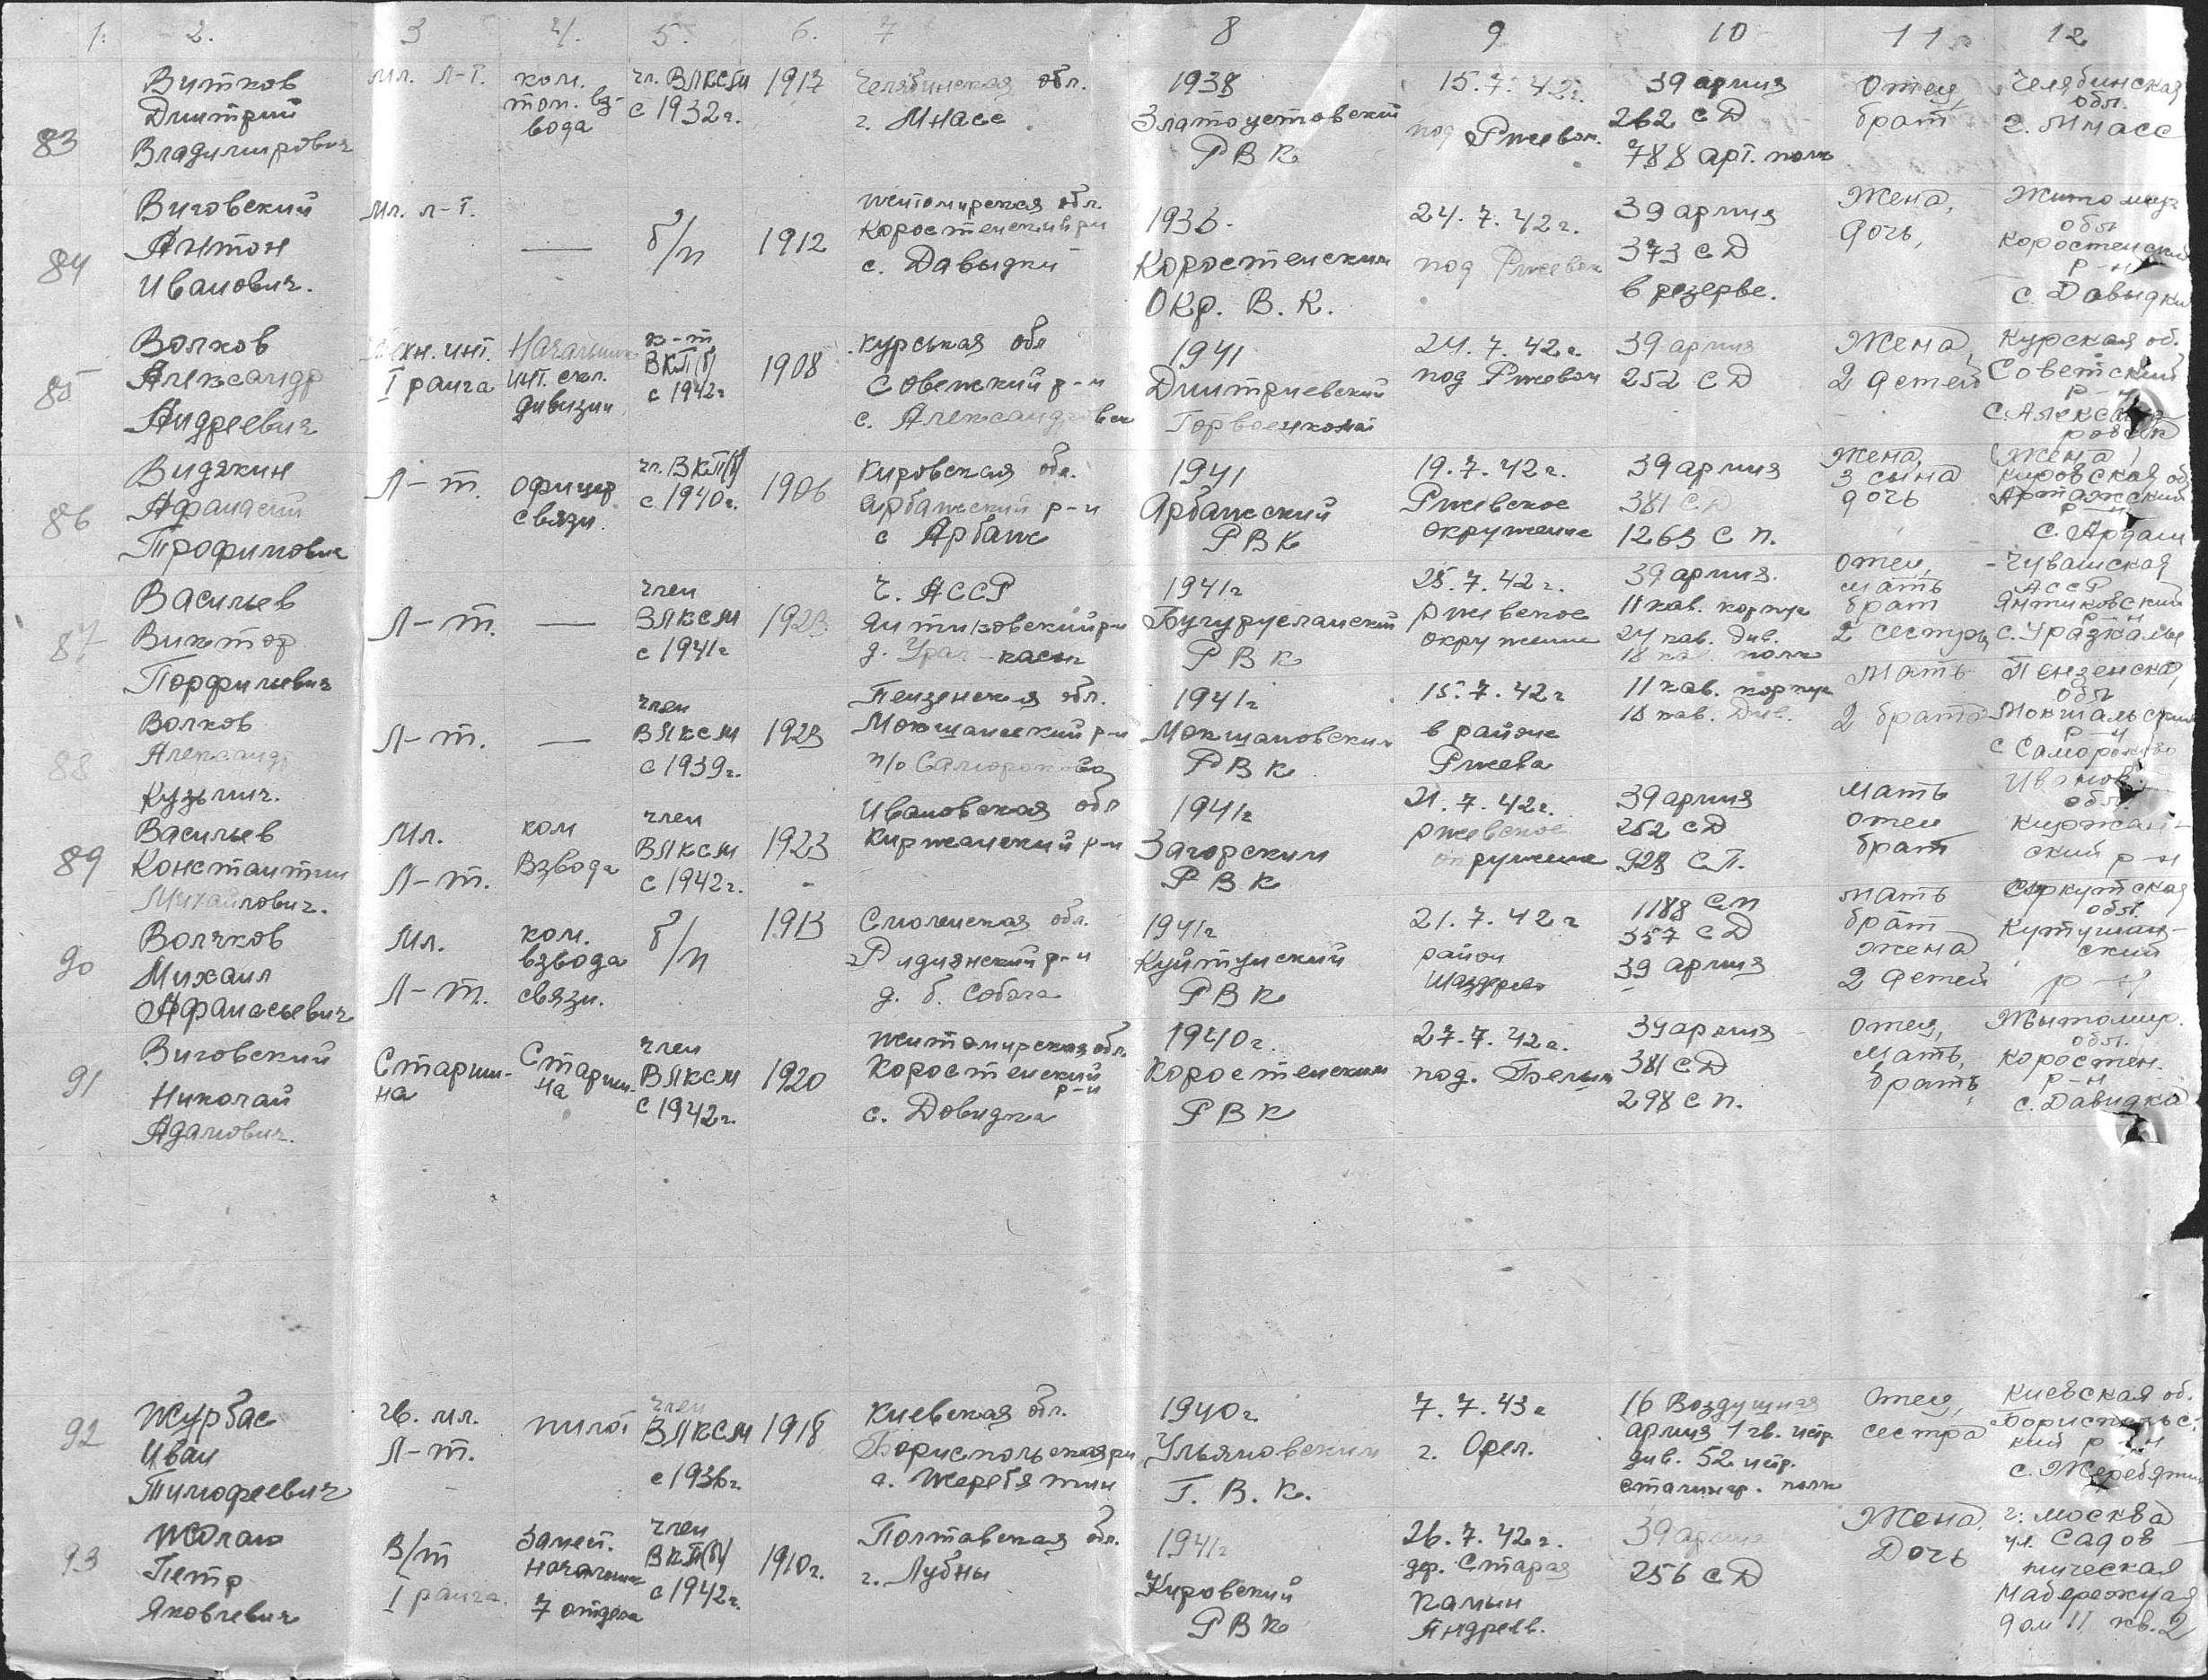 1. 2. 3 4. 5. 6. 7 8 9 10 11 12
83
Витков
Дмитрий
Владимирович
мл. л-т.
ком.
топ. вз-
вода
чл. ВЛКСМ
с 1932г.
1917
Челябинская обл.
г. Миасс
1938
Златоустовский
РВК
15.7.42г.
под Ржевом.
39 армия
262 СД
788 арт. полк
Отец,
брат
Челябинская
обл.
г. Миасс
84
Виговский
Антон
Иванович.
мл. л-т.
—
б/п
1912
Житомирская обл.
Коростенский р-н
с. Давыдки
1936.
Коростенским
Окр. В.К.
24.7.42г.
под Ржевом
39 армия
373 СД
в резерве.
Жена,
дочь,
Житомир
обл
Коростенский
р-н
с. Давыдки
85
Волков
Александр
Андреевич
техн. инт.
I ранга
Начальник
инт. скл.
дивизии
к-т
ВКП(б)
с 1942г
1908
Курськая обл
Советский р-н
с. Александровск
1941
Дмитриевский
Горвоенкомат
24.7.42г.
под Ржевом
39 армия
252 СД
Жена,
2 детей
Курская об.
Советский
р-н
с. Александ
ровск
86
Видякин
Афанасий
Трофимович
Л-т.
Офицер
связи.
чл. ВКП(б)
с 1940г.
1906
Кировская обл.
Арбажский р-н
с Арбаж
1941
Арбажский
РВК
19.7.42г.
Ржевское
окружение
39 армия
381 СД
1263 с п.
Жена,
3 сына
дочь
(Жена)
Кировская об
р-н
с. Арбаж
87
Васильев
Виктор
Порфирьевич
Л-т.
—
член
ВЛКСМ
с 1941г
1923
Ч. АССР
Янтиковский р-н
д. Ураз-касы
1941г
Бугурусланский
РВК
25.7.42г.
ржевское
окружение
39 армия.
11 кав. корпус
24 кав. див.
18 кав. полк
отец,
мать
брат
2 сестры
Чувашская
АССР
Янтиковский
р-н
с. Уразкасы
88
Волков
Александр
Кузьмич.
Л-т.
—
член
ВЛКСМ
с 1939г.
1923
Пензенская обл.
Мокшанский р-н
п/о Саморо
1941г
Мокшановским
РВК
15.7.42г
в районе
Ржева
11 кав. корпус
18 кав. див.
Мать
2 брата
Пензенска
обл
р-н
89
Васильев
Константин
Михайлович.
Мл.
Л-т.
ком
взвода
член
ВЛКСМ
с 1942г.
1923
Ивановская обл
Киржачский р-н
1941г
Загорским
РВК
21.7.42г.
ржевское
окружение
39 армия
252 СД
928 СП.
мать
отец
брат
Иванов.
обл.
Киржач-
ский р-н
90
Волчков
Михаил
Афанасьевич
Мл.
Л-т.
ком.
взвода
связи.
б/п
1913
Смоленская обл.
д. б. Собача
1941г
Куйтунский
РВК
21.7.42г
район
1188 СП
357 СД
39 армия
мать
брат
жена
2 детей
обл.
ский
р-н
91
Виговский
Николай
Адамович.
Старши-
на
Старши-
на
член
ВЛКСМ
с 1942г.
1920
Житомирская обл.
Коростенский
р-н
с. Довидка
1940г.
Коростенским
РВК
27.7.42г.
под. Белым
39 армия
381 СД
298 с п.
Отец,
Мать,
брать,
Жытомир.
обл.
Коростен.
р-н
с. Давидка
92
Журбас
Иван
Тимофеевич
гв. мл.
Л-т.
пилот
член
ВЛКСМ
с 1936г.
1918
Киевская обл.
Бориспольская р-н
с. Жеребятин
1940г.
Ульяновским
Г.В.К.
7.7.43г
г. Орел.
16 Воздушная
армия 1 гв. истр.
див. 52 истр.
сталингр. полк
Отец,
сестра
Киевская об.
Борисполсь-
кий р-н
с. Жеребятин
93
Жолан
Петр
Яковлевич
В/т
I ранга.
Замест.
начальник
7 отдела
член
ВКП(б)
с 1942г.
1910г.
Полтавская обл.
г. Лубны
1941г
Кировский
РВК
26.7.42г.
дер. Старая
Андреев.
39 армия
256 СД
Жена,
Дочь
г. Москва
ул. Садов-
ническая
Набережная
дом 11 кв. 2